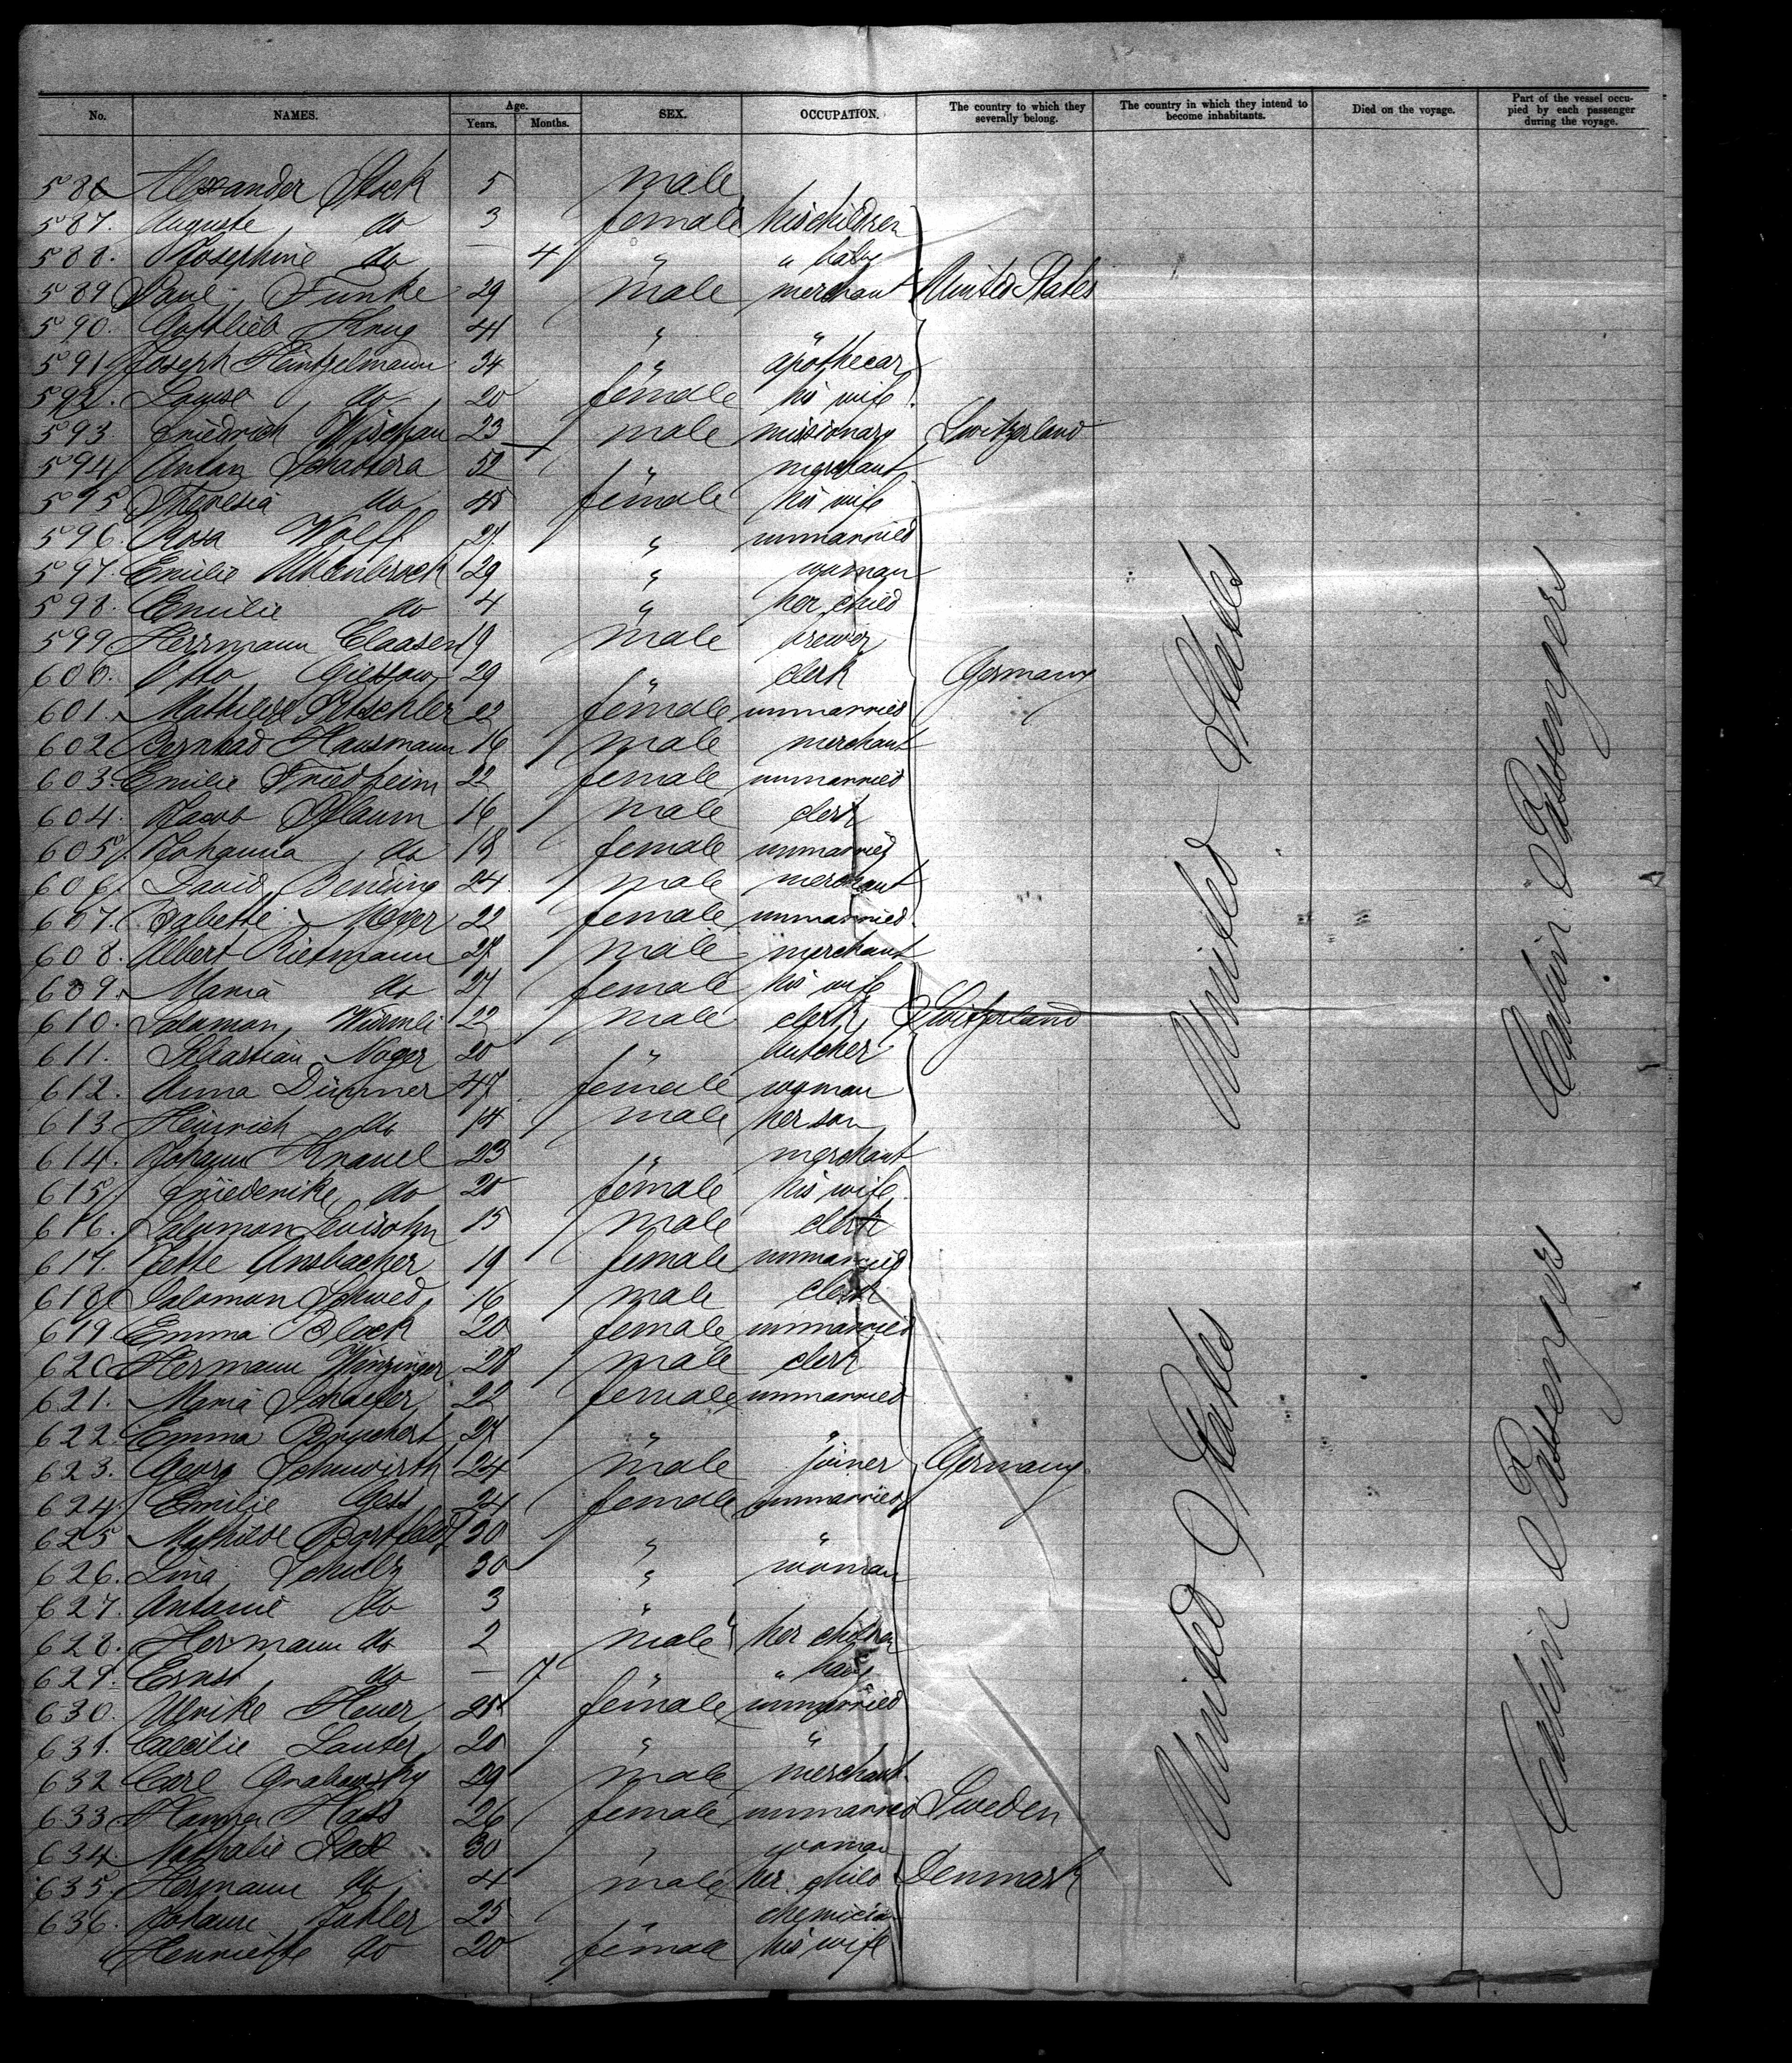 No. NAMES. Age. Years. Months. SEX. OCCUPATION. The country to which they severally belong. The country in which they intend to become inhabitants. Died on the voyage. Part of the vessel occupied by each passenger during the voyage.
586 Alexander Stock 5 male
587. Auguste do 3 female his children
588. Josephine do — 4 " " baby
589 Paul Funke 29 male merchant United States
590. Gottlieb Krug 41 " "
591 Joseph Heintzelmann 34 " apothecar
592. Louise do 20 female his wife
593. Friedrich Wischan 23 male missionary Switzerland
594 Anton 52 " merchant
595 Theresia do 45 female his wife
596. Rosa Wolff 27 " unmarried
597. Emilie Uhlenbrock 29 " woman
598. Emilie do 4 " her child
599 Herrmann Claasen 19 male brewer
600. Otto Giessow 29 " clerk Germany
601. Mathilde 22 female unmarried
602 Bernhad Hausmann 16 male merchant
603. Emilie Friedheim 22 female unmarried
604. Jacob Pflaum 16 male clerk
605 Johanna do 18 female unmarried
606. David Bending 24 male merchant
607. Babette Meyer 22 female unmarried
608. Albert Rietmann 27 male merchant
609. Maria do 27 female his wife
610. Salomon Würmli 22 male clerk Switzerland
611. Sebastian Noger 20 " butcher
612. Anna Dünner 47 female woman
613 Heinrich do 14 male her son
614. Johann Knauel 23 " merchant
615 Friederike do 20 female his wife
616. Salomon Levisohn 15 male clerk
617. Jette Ansbacher 19 female unmarried
618 Salomon Schwed 16 male clerk
619 Emma Block 20 female unmarried
620 Hermann Winzinger 28 male clerk
621. Maria Schaefer 22 female unmarried
622. Emma 27 " "
623. Georg Schuwirth 24 male joiner Germany
624 Emilie Gess 24 female unmarried
625 Mathilde Bortfeldt 20 " "
626. Lina Schulz 30 " woman
627. Antonie do 3 "
628. Hermann do 2 male her children
629. Ernst do — 7 " " baby
630. Ulrike Heuer 25 female unmarried
631. Caecilie Lauter 20 " "
632 Carl Grabowsky 29 male merchant
633 Hanna Hass 26 female unmarried Sweden
634. Nathalie 30 " woman
635. Hermann do 4 male her child Denmark
636. Johann Johler 25 " chemician
Henriette do 20 female his wife
United States
United States
Cabin Passengers
Cabin Passengers